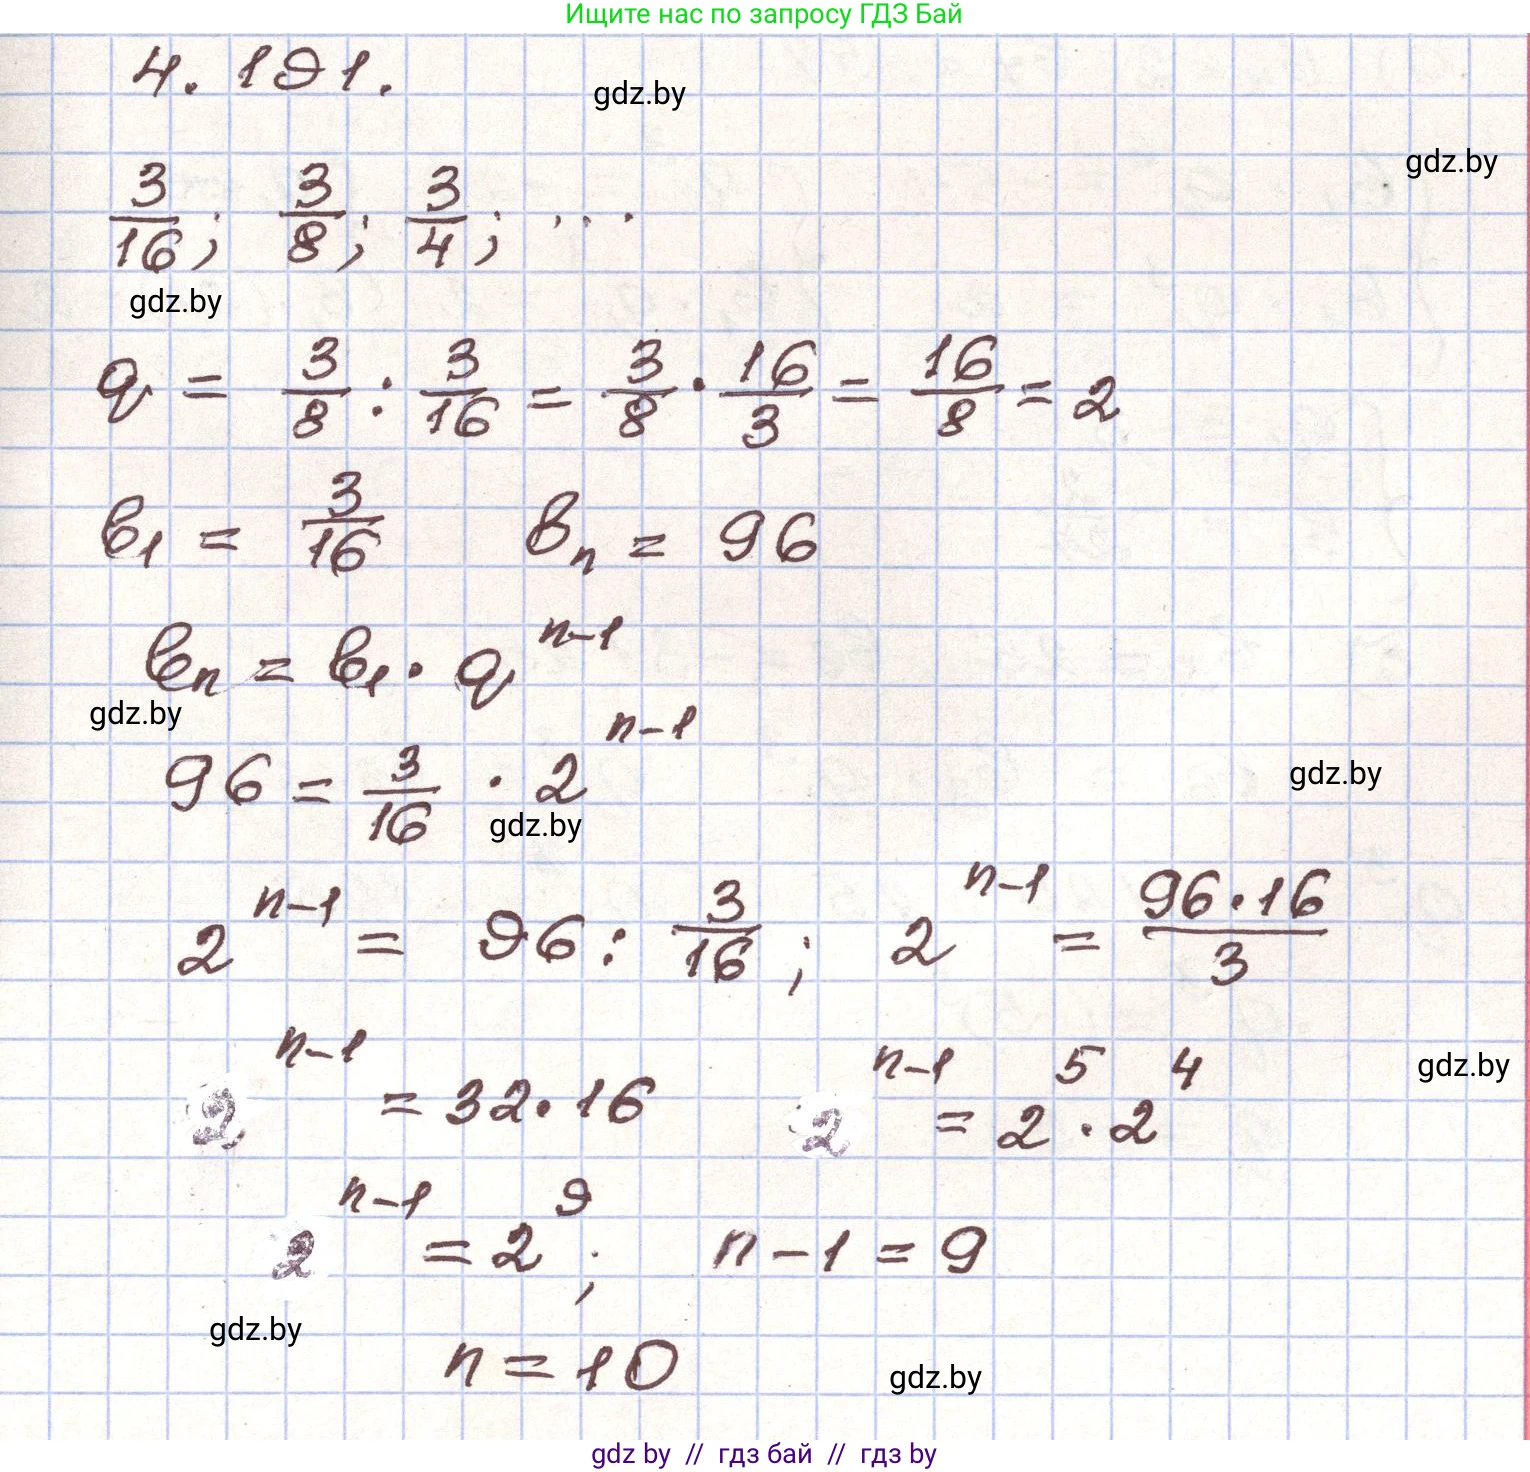 Ищите нас по запросу ГДЗ Бай
4.191.
gdz.by
gdz.by
3/16; 3/8; 3/4; ...
gdz.by
q = 3/8 : 3/16 = 3/8 · 16/3 = 16/8 = 2
b₁ = 3/16 bₙ = 96
bₙ = b₁ · qⁿ⁻¹
gdz.by
96 = 3/16 · 2ⁿ⁻¹
gdz.by
gdz.by
2ⁿ⁻¹ = 96 : 3/16; 2ⁿ⁻¹ = 96·16/3
gdz.by
2ⁿ⁻¹ = 32·16 2ⁿ⁻¹ = 2⁵ · 2⁴
2ⁿ⁻¹ = 2⁹; n-1 = 9
gdz.by
n = 10
gdz.by
gdz by // гдз бай // гдз by